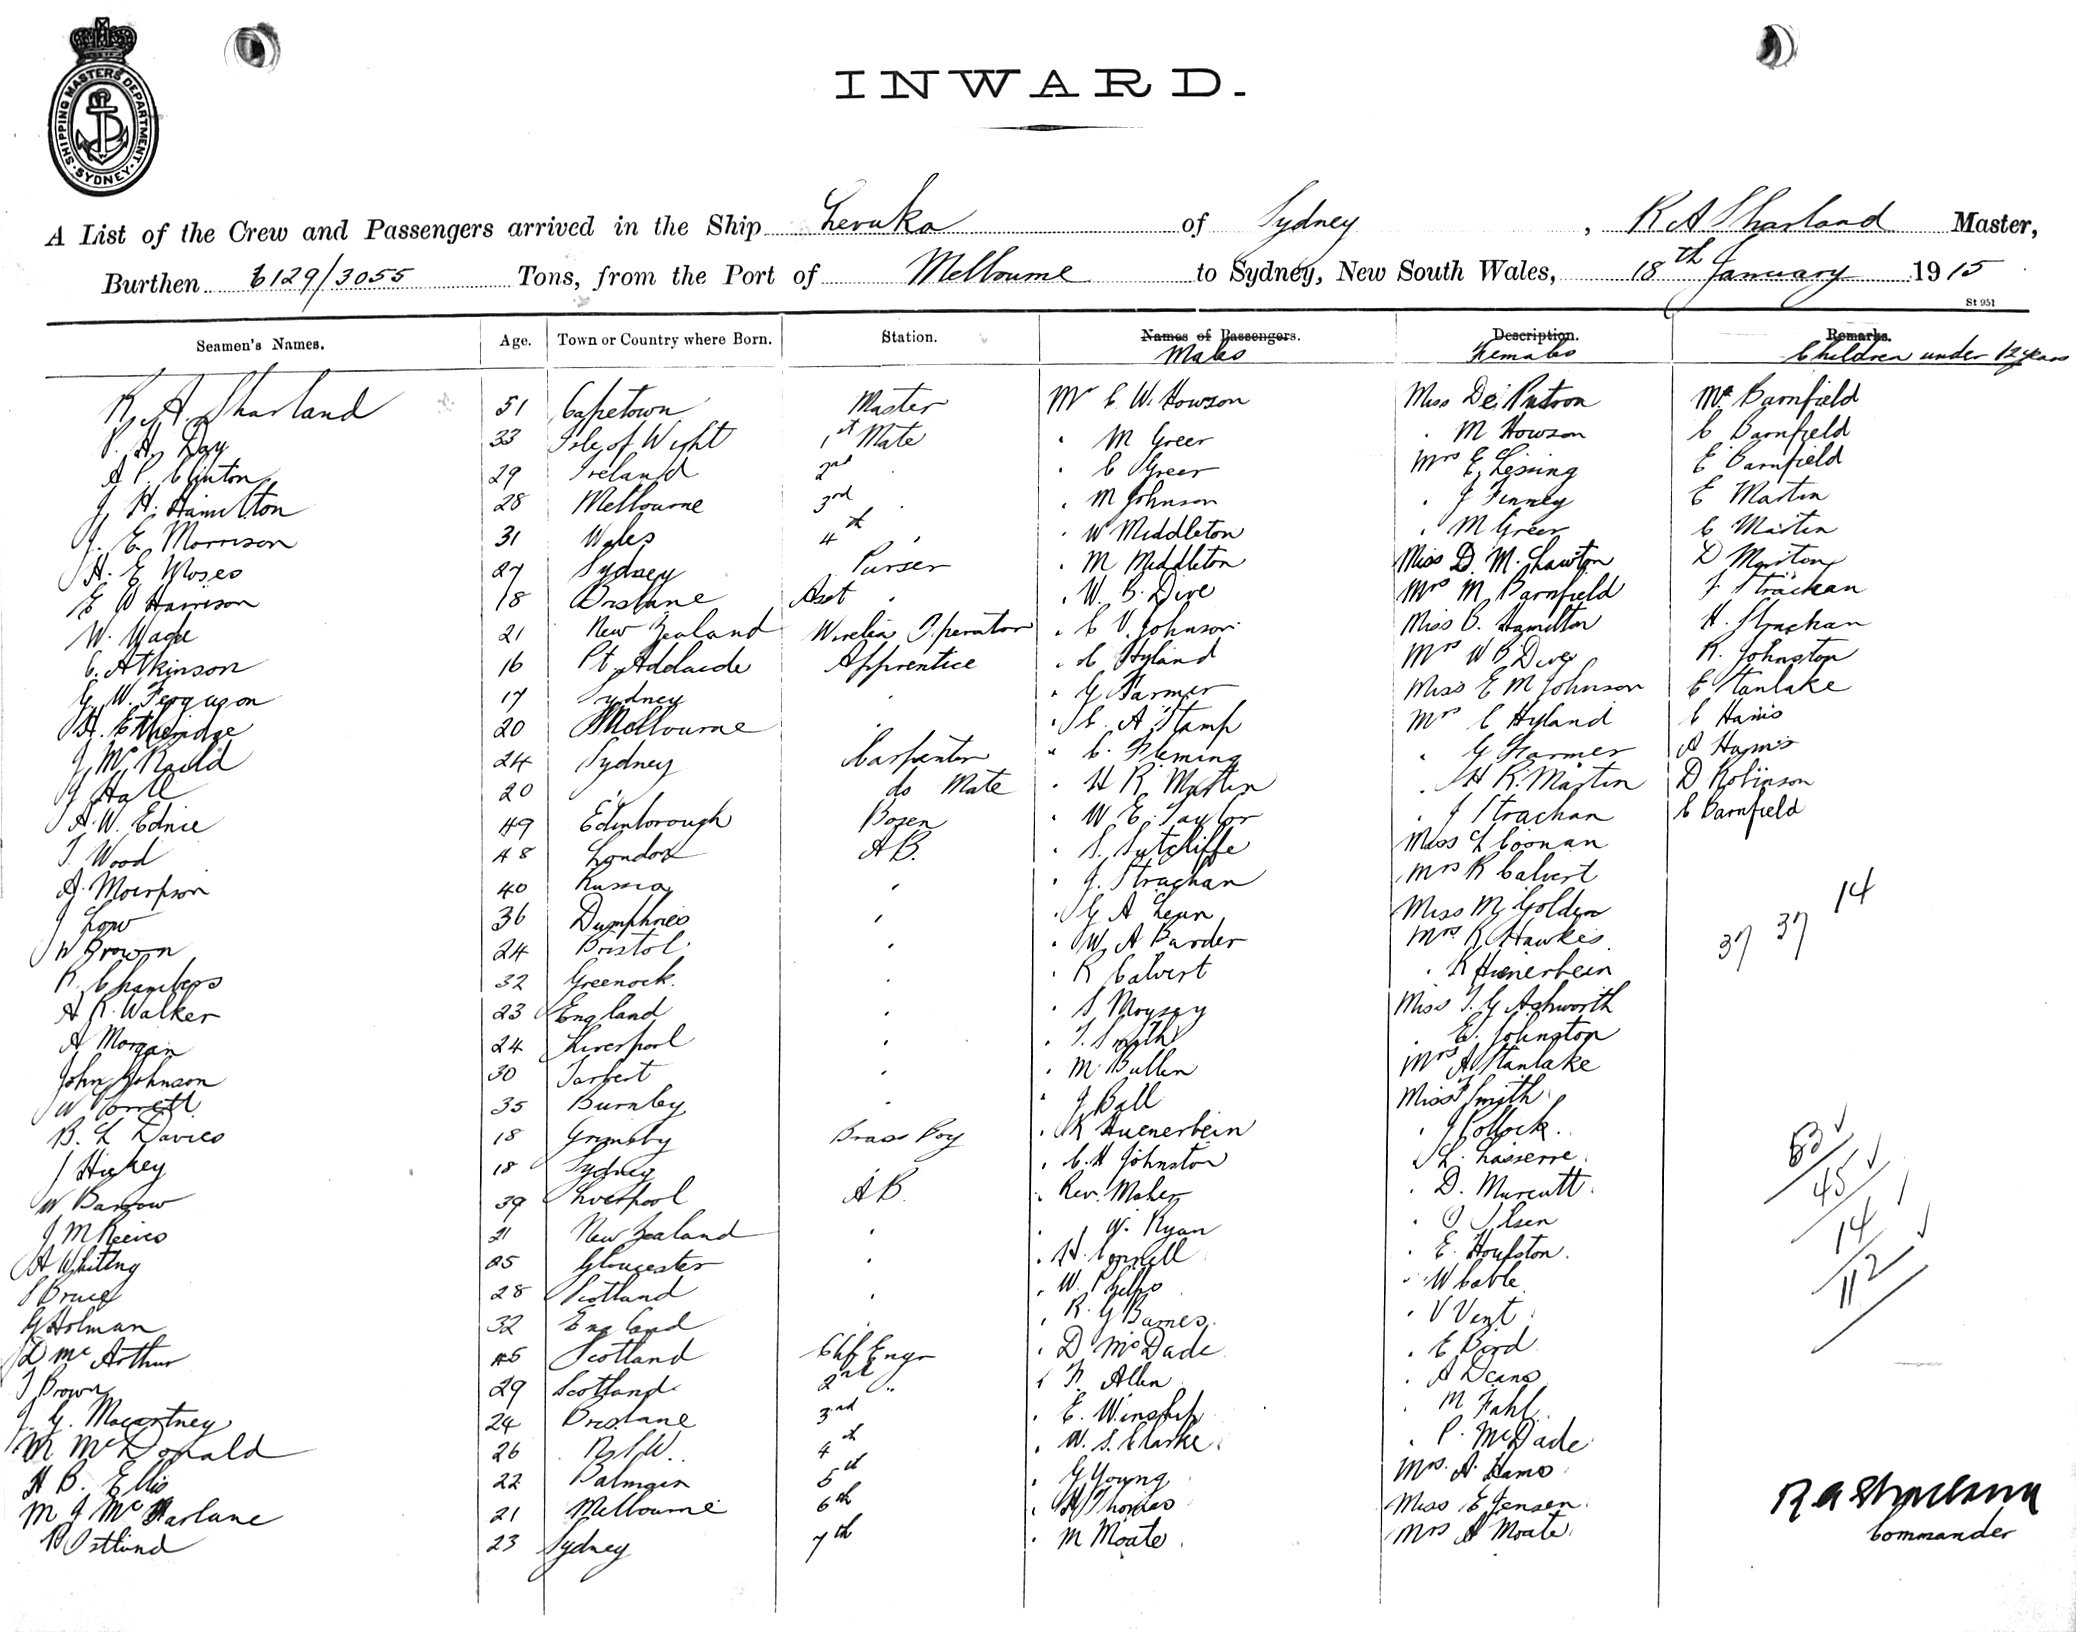 SHIPPING MASTERS DEPARTMENT. SYDNEY
INWARD.
A List of the Crew and Passengers arrived in the Ship Levuka of Sydney, R A Sharland Master,
Burthen 6129/3055 Tons, from the Port of Melbourne to Sydney, New South Wales, 18th January 1915
St 951
Seamen's Names. Age. Town or Country where Born. Station. Names of Passengers. Description. Remarks.
Males Females Children under 12 years
R. A. Sharland 51 Capetown Master Mr C W. Howson Miss De Putron Mr Barnfield
P. H. Day 33 Isle of Wight 1st Mate " M Greer " M Howson C Barnfield
A P. Clinton 29 Ireland 2nd " C Greer Mrs E Lissing E Barnfield
J. H. Hamilton 28 Melbourne 3rd " M Johnson " J Finney E Martin
J. E. Morrison 31 Wales 4th " W Middleton " M Greer C Martin
H. E Moses 27 Sydney Purser " M Middleton Miss D. M. Lawton D Martin
E W Harrison 18 Brisbane Asst " " W. B. Dive Mrs M Barnfield J Strachan
W. Wade 21 New Zealand Wireless Operator " C V. Johnson Miss B. Hamilton H. Strachan
C. Atkinson 16 Pt Adelaide Apprentice " C Hyland Mrs W B Dive R. Johnston
G. W. Ferguson 17 Sydney " " G Farmer Miss E M Johnson C Stanlake
H. Etheridge 20 Melbourne " " C. A Stamp Mrs C Hyland C Harris
J McKaild 24 Sydney Carpenter " C. Fleming " G Farmer A Harris
J Hall 20 " do Mate " H R Martin " H R. Martin D Robinson
A. W. Ednie 49 Edinborough Bosen " W E Taylor " J Strachan C Barnfield
T. Wood 48 London A B. " S. Sutcliffe Miss L Coonan
A. 40 Russia " " J. Strachan Mrs R Calvert
J Low 36 Dumphries " " G A Lean Miss M Golden 14
W Brown 24 Bristol " " W. A Barder Mrs R Hawkes 37 37
R. Chambers 32 Greenock. " " R Calvert " R Huenerbein
A R. Walker 23 England " " S Moysey Miss T. G Ashworth
A Morgan 24 Liverpool " " T. Smith " E. Johnston
John Johnson 30 Tarbert " " M. Bullen Mrs A Stanlake
W Correll 35 Burnley " " J Ball Miss Smith
B. L Davies 18 Grimsby Brass Boy " R Huenerbein " J Pollock. 63
J Hickey 18 Sydney " C. H Johnston " L. Lasserre 45
W Barrow 39 Liverpool A B. " Rev. Maher " D. Murcutt. 14
J M Reeves 21 New Zealand " " W. Ryan " O Olsen
A Whiting 25 Gloucester " " H. Connell " E. Houston. 112
S Bruce 28 Scotland " " W. Phelps " W Cable
G Holman 32 England " " R. G Barnes. " V Vent
D Mc Arthur 45 Scotland Chf Engr " D McDade " E Bird
T Brown 29 Scotland 2nd " " F. Allen " A Deans
J. G. Macartney 24 Brisbane 3rd " E. Winship " M Fahl.
M McDonald 26 N S W. 4th " W. S. Clarke. " P. McDade
H B. Ellis 22 Balmain 5th " G Young Mrs. A. Hams
M J McFarlane 21 Melbourne 6th " H Thomas Miss E Jensen.
R Ostlund 23 Sydney 7th " M Moate Mrs A Moate
R A Sharland
Commander